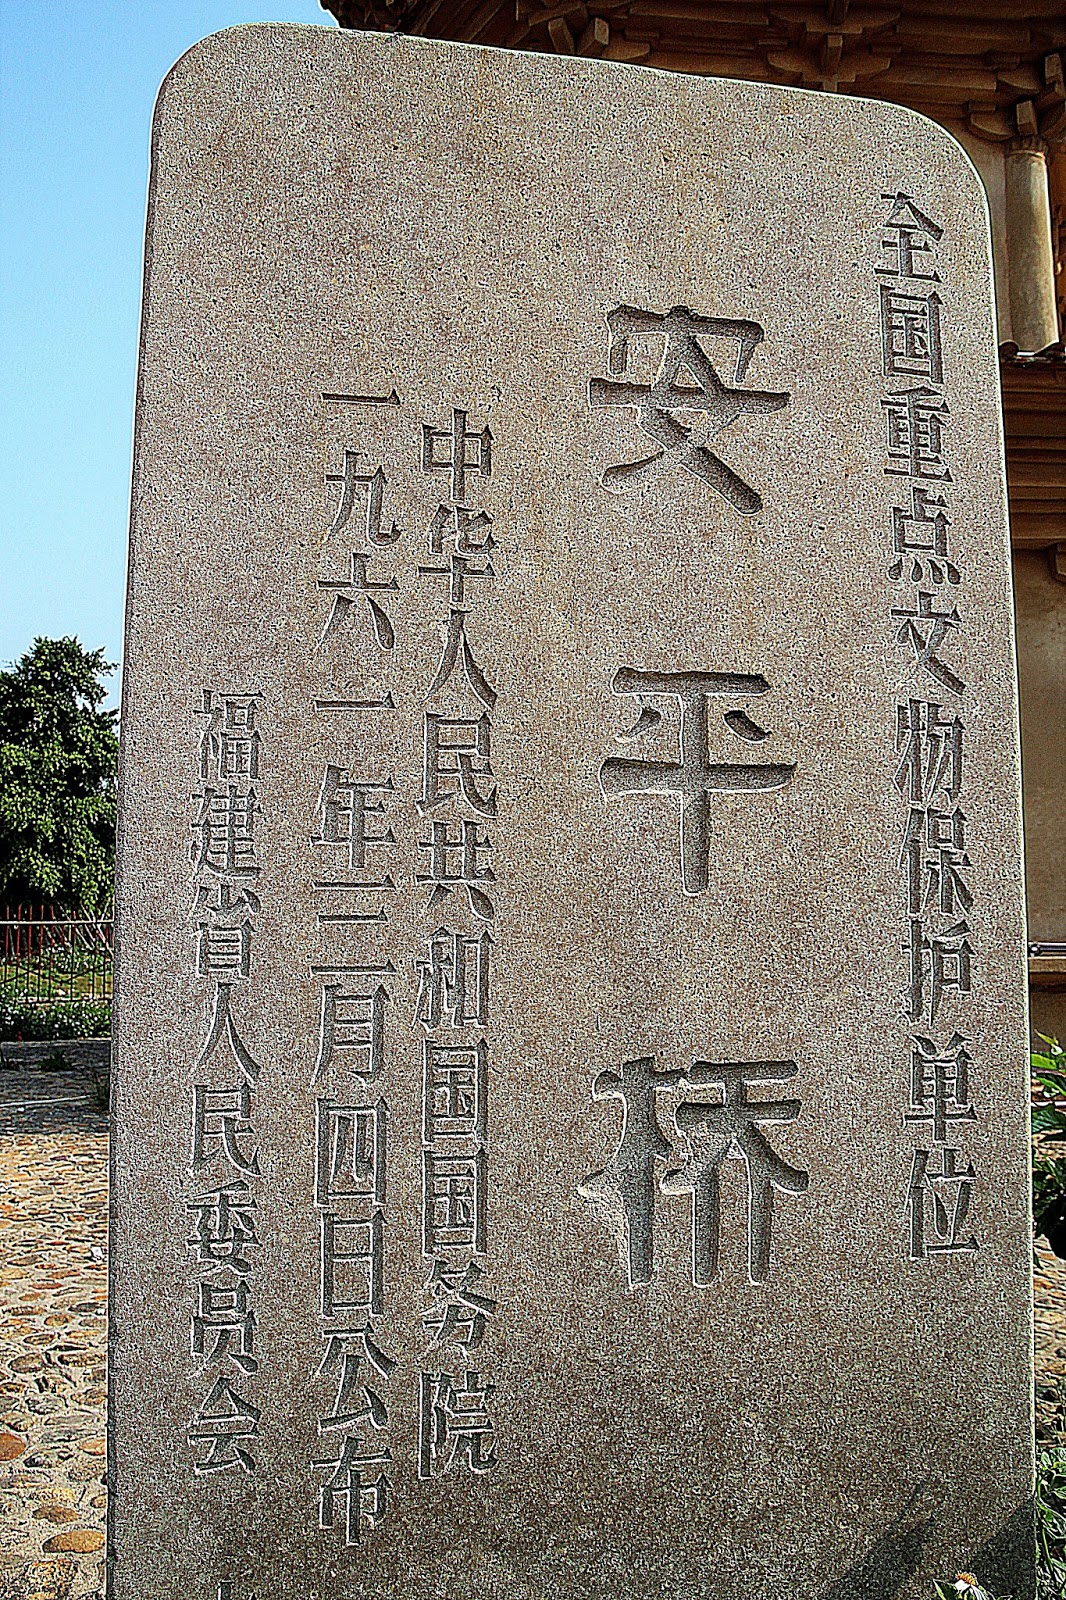 全国重点文物保护单位
安平桥
中华人民共和国国务院
一九六一年三月四日公布
福建省人民委员会